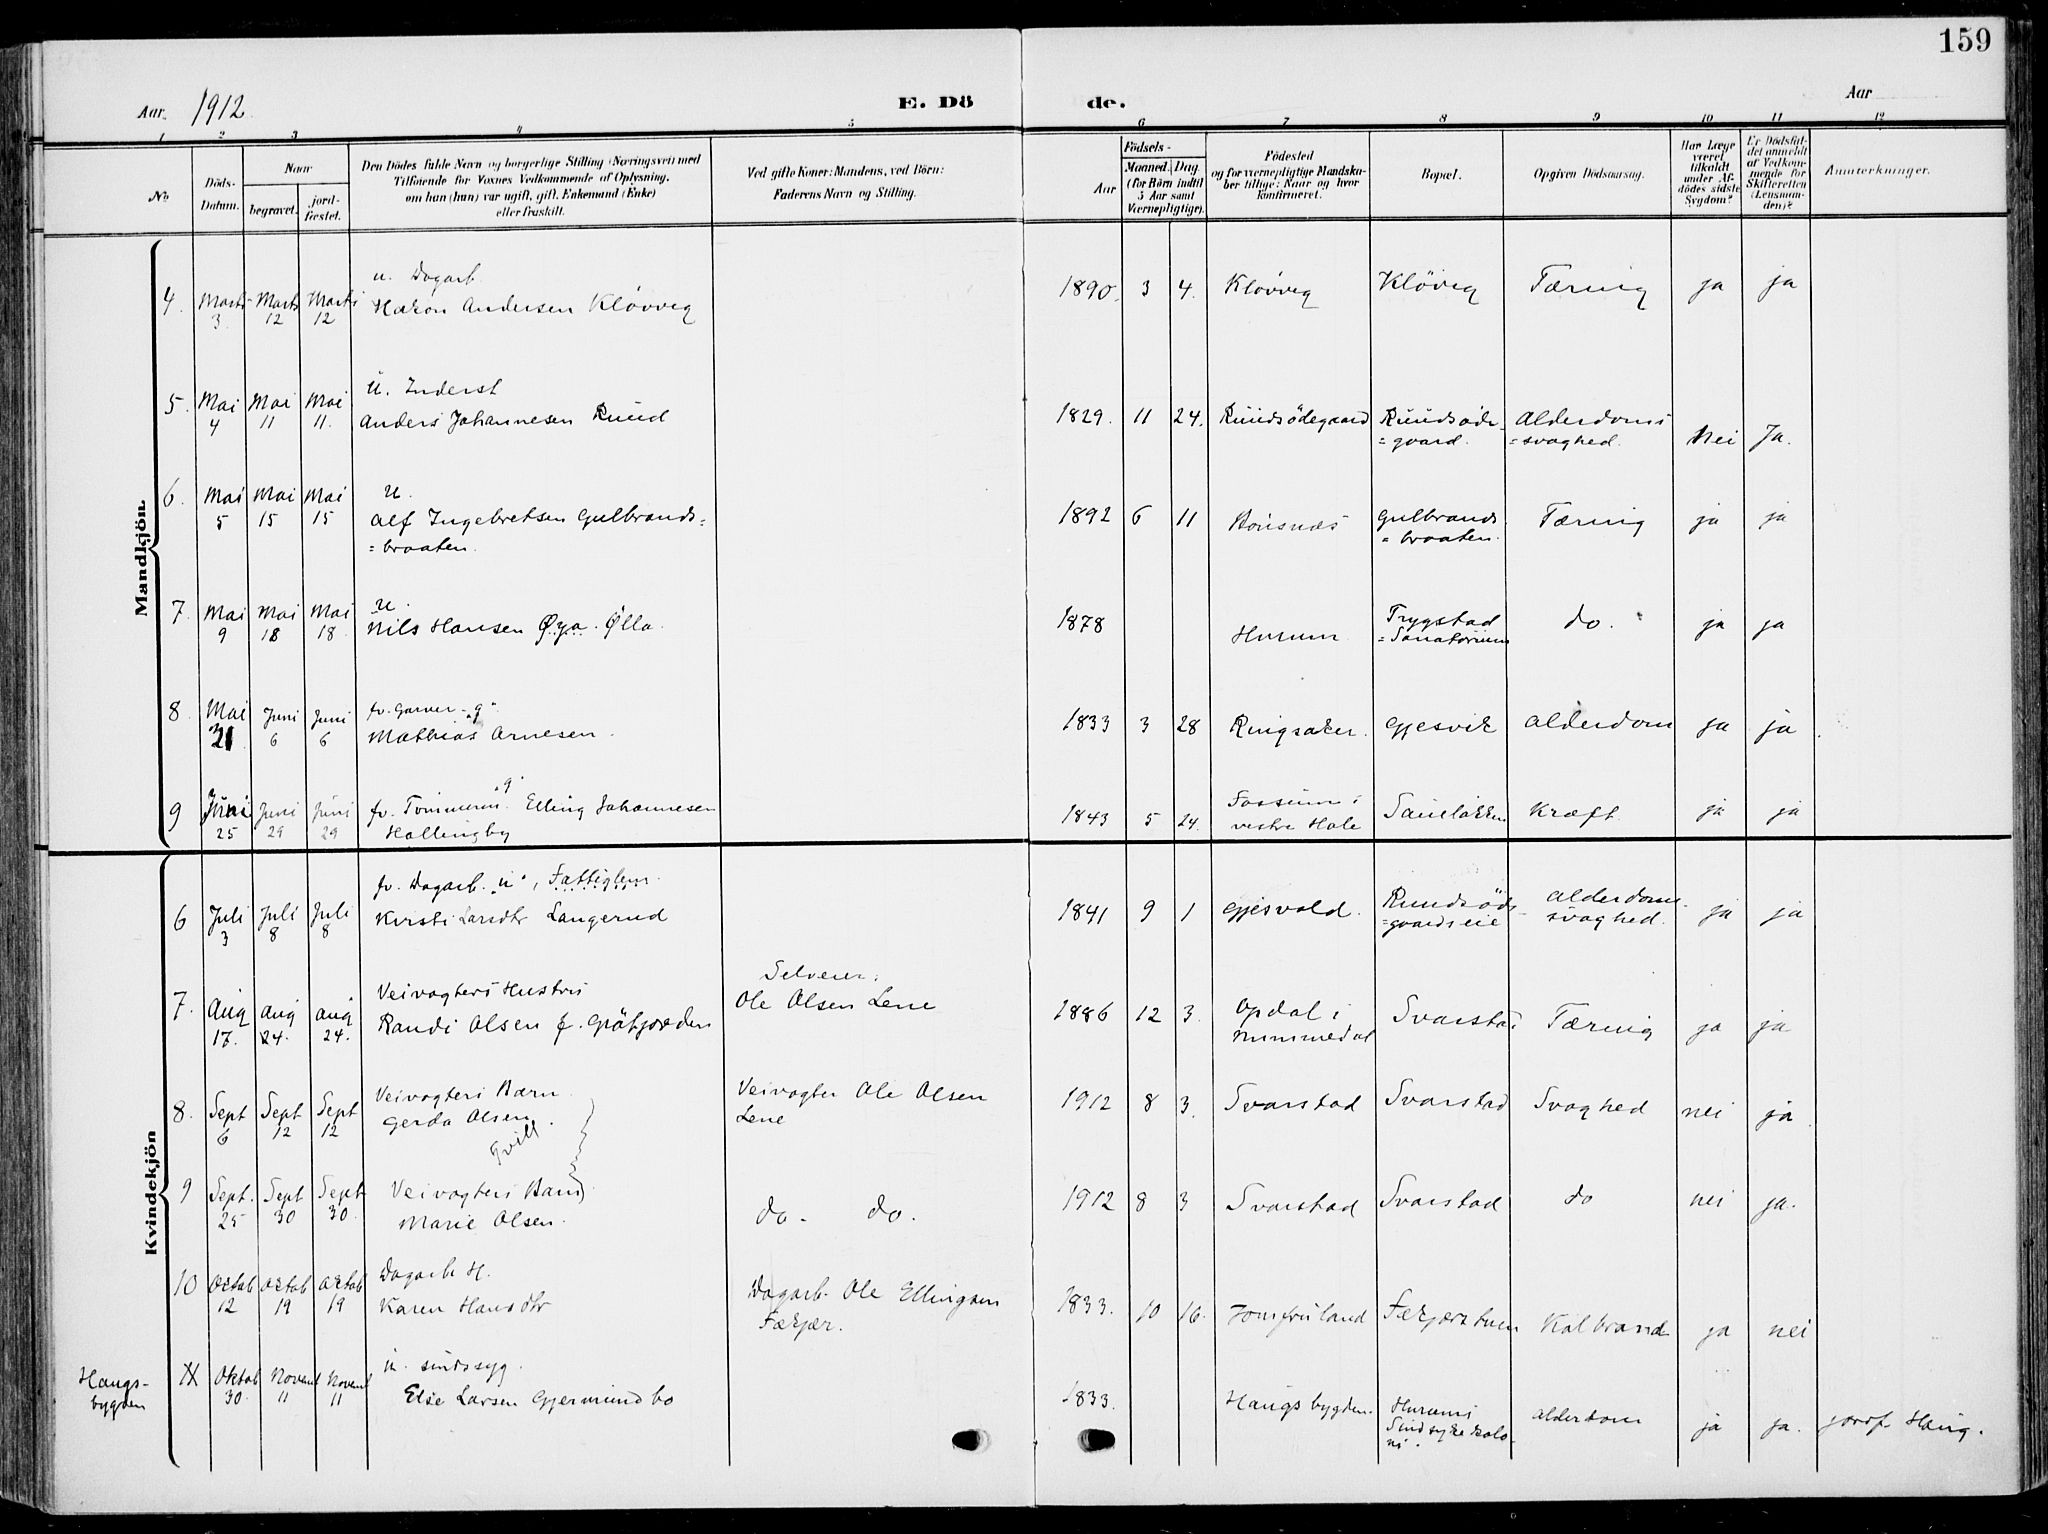 159
Aar 1912.
E. Dö
de.
Aar
1 2 3 4 5 6 7 8 9 10 11 12
No
Döds-
Datum.
Naar
begravet.
jord-
fæstet.
Den Dödes fulde Navn og borgerlige Stilling (Næringsvei) med
Tilföiende for Voxnes Vedkommende af Oplysning,
om han (hun) var ugift, gift, Enkemand (Enke)
eller fraskilt.
Ved gifte Koner: Mandens, ved Börn:
Faderens Navn og Stilling.
Födsels-
Aar
Maaned. Dag.
(for Börn indtil
5 Aar samt
Værnepligtige).
Födested
og for værnepligtige Mandska-
ber tillige: Naar og hvor
konfirmeret.
Bopæl.
Opgiven Dödsaarsag.
Har Læge
været
tilkaldt
under Af-
dödes sidste
Sygdom?
Er Dödsfal-
det anmeldt
af Vedkom-
mende for
Skifteretten
(Lensman-
den)?
Anmerkninger.
Mandkjön.
4. Marts 3. Marts 12 Marts 12
u. Dagarb.
Hakon Andersen Kløvvig
1890. 3 4. Kløvvig Kløvig Tæring ja ja
5. Mai 4 Mai 11 Mai 11.
u. Inderst
Anders Johannesen Ruud
1829. 11 24. Ruudsødegaard Ruudsøde-
=gaard. Alderdoms
=svaghed. Nei Ja.
6. Mai 5 Mai 15 Mai 15
u.
Alf Ingebretsen Gulbrands=
=braaten.
1892 6 11 Bønsnæs Gulbrands
=braaten. Tæring ja ja
7. Mai 9 Mai 18 Mai 18.
u.
Nils Hansen Øya. Ølla.
1878 Hurum Trygstad
=Sanatorium do. ja ja
8. Mai 21 Juni 6 Juni 6
fv. Garver "g".
Mathias Arnesen.
1833 3 28 Ringsaker. Gjesvik Alderdom ja ja
9 Juni 25 Juni 29 Juni 29
fv. Tømmerm. "g" Elling Johannesen
Hallingby
1843 5 24. Fossum i
vestre Hole Kræft. ja ja
Kvindekjön
6 Juli 3 Juli 8 Juli 8
fv. Dagarb. "u", Fattiglem.
Kirsti Larsdtr Langerud
1841 9 1 Gjesvold. Ruudsøde-
=gaards eie Alderdoms-
svaghed. ja ja
7. Aug 17. Aug 24. Aug 24.
Veivogters Hustru
Randi Olsen f. Gråfjorden
Selveier:
Ole Olsen Lene
1886 12 3. Opdal i
Nummedal Svarstad Tæring ja ja
8. Sept 6 Sept 12 Sept 12
Veivogters Barn
Gerda Olsen.
Tvill
Veivogter Ole Olsen
Lene
1912 8 3. Svarstad Svarstad Svaghed nei ja
9 Sept. 25 Sept 30 Sept 30.
Veivogters Barn
Marie Olsen.
do. do.
1912 8 3 Svarstad Svarstad do nei ja.
10 Oktob 12 Oktob 19 Oktob 19
Dagarb. H.
Karen Hansdtr
Dagarb. Ole Ellingsen
Fækjær.
1833. 10 16. Jomfruland Fækjærstuen Koldbrand ja nei
Haugs-
bygden
11 Oktob 30. Novemb 11 Novemb 11
u. sindssyg.
Else Larsen Gjermundbo
1833. Haugsbygden. Hurums
Sindsykekolo-
ni. Alderdom ja ja. jordf. Haug.